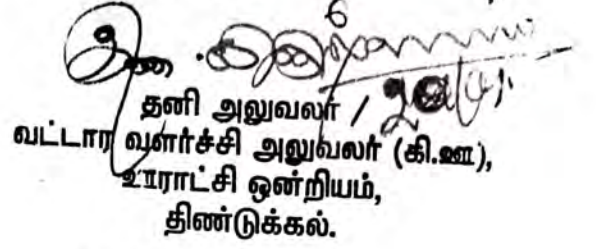 6
தனி அலுவலர் /
வட்டார வளர்ச்சி அலுவலர் (கி.ஊ),
ஊராட்சி ஒன்றியம்,
திண்டுக்கல்.